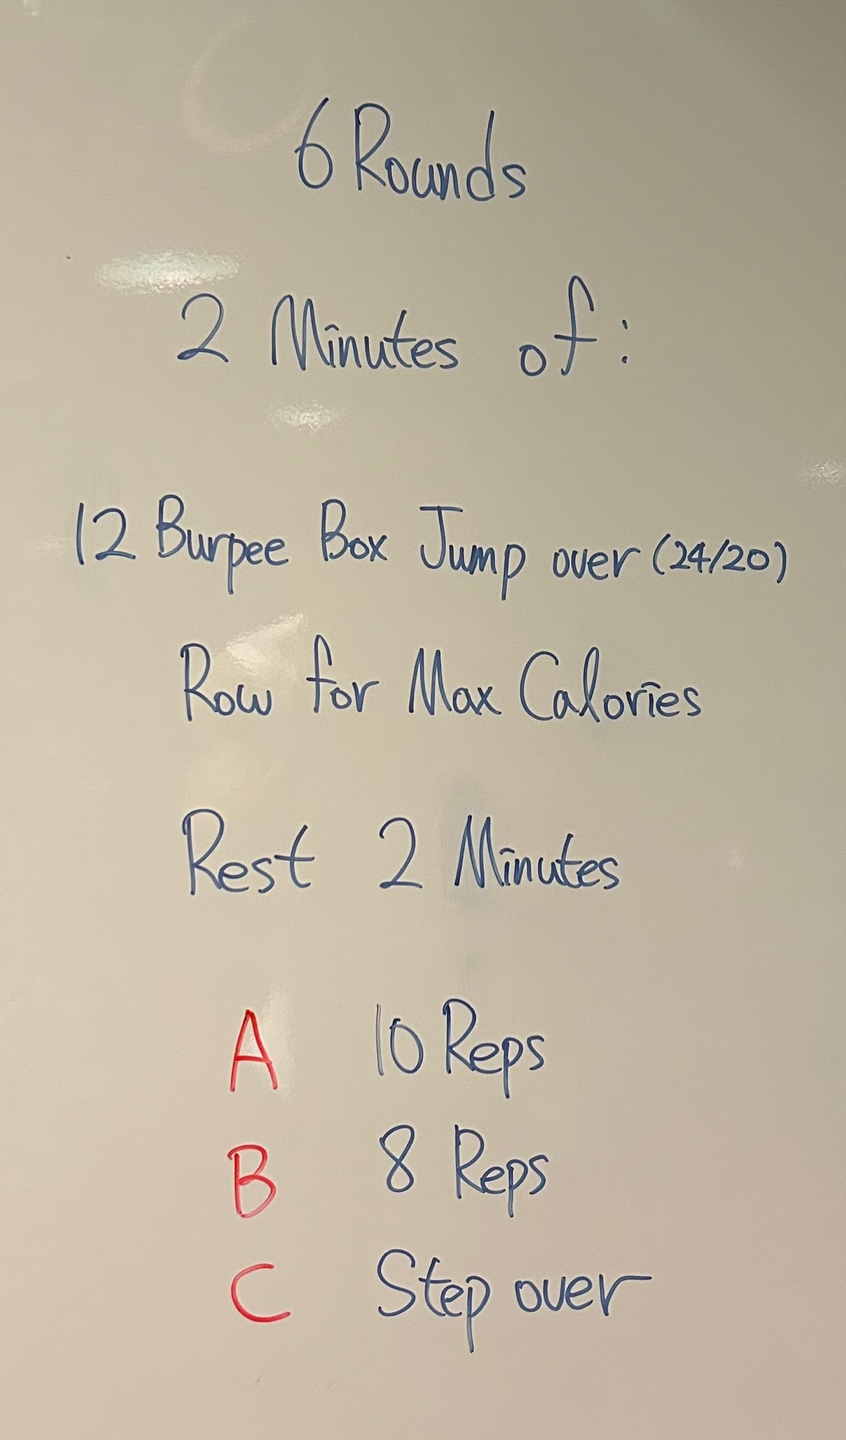 6 Rounds
2 Minutes of:
12 Burpee Box Jump over (24/20)
Row for Max Calories
Rest 2 Minutes
A 10 Reps
B 8 Reps
C Step over